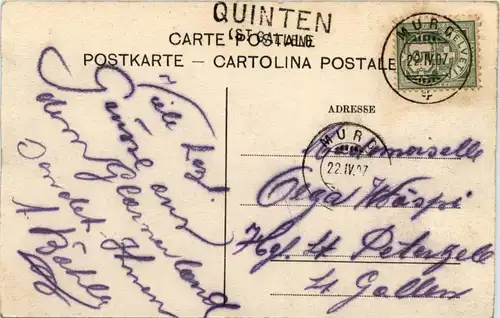 QUINTEN
(ST. GALLEN)
CARTE POSTALE
POSTKARTE — CARTOLINA POSTALE
MURG
22.IV.07
HELVETIA
ADRESSE
MURG
22.IV.07
Viele herzl.
Grüsse aus
dem Glarnerland
sendet Ihnen
A. Bächler
Mademoiselle
Olga Wäspi
Hgl. St Peterzell
St Gallen